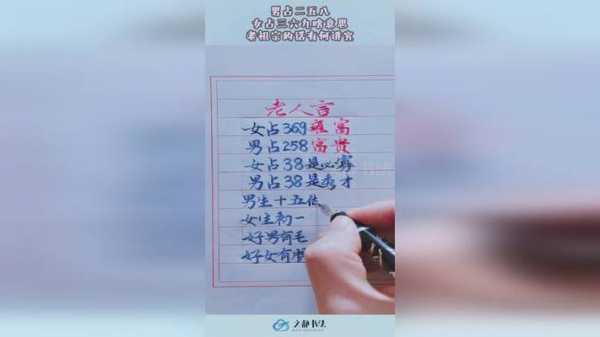 男占二五八
女占三六九啥意思
老祖宗的话有何讲究
老人言
女占369 富
男占258富贵
女占38是必
男占38是秀才
男生十五
女生初一
好男有毛
好女有